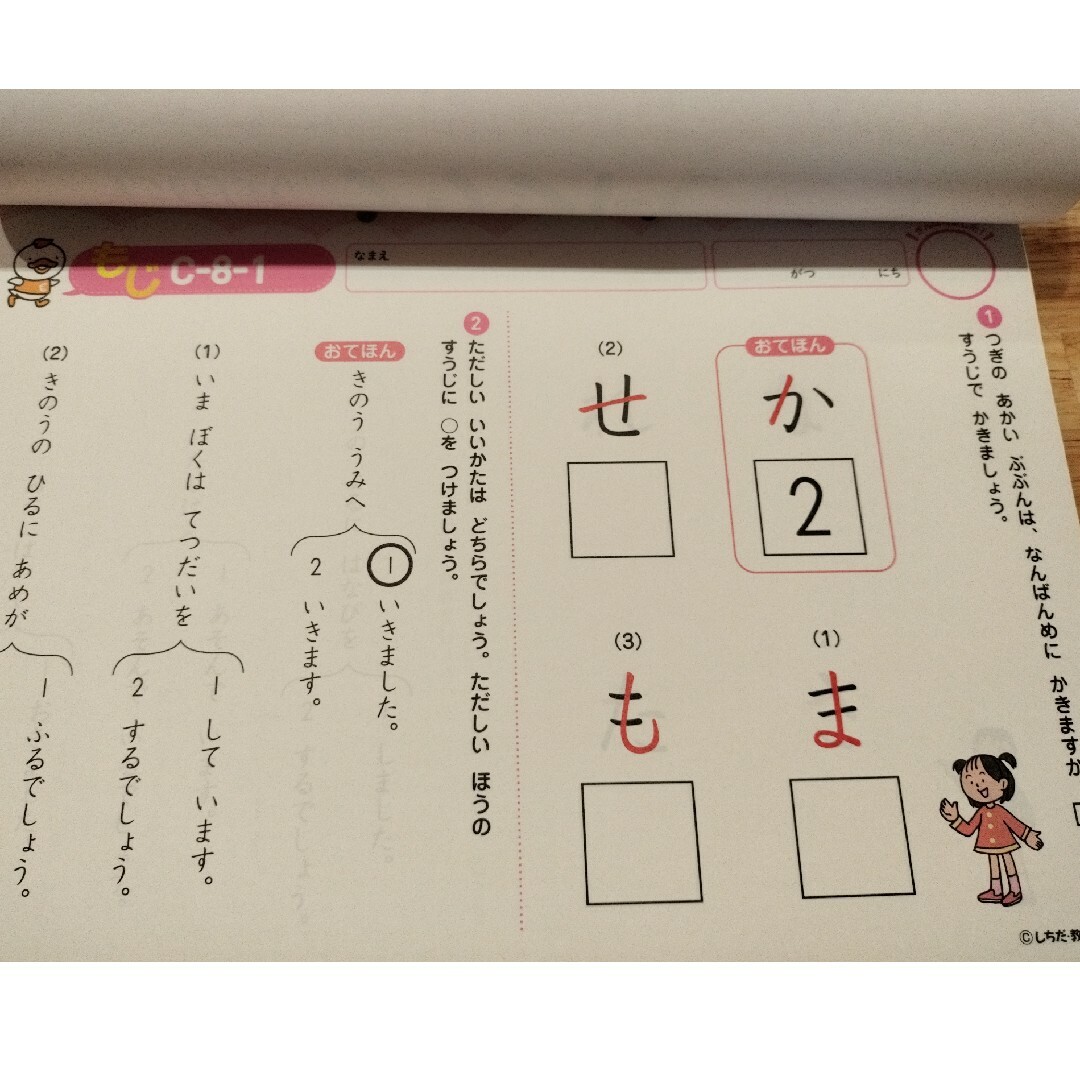 もじ C-8-1
なまえ
がつ にち
1
つぎの あかい ぶぶんは、なんばんめに かきますか
すうじで かきましょう。
おてほん
か
2
(1)
ま
(2)
せ
(3)
も
2
ただしい いいかたは どちらでしょう。ただしい ほうの
すうじに ○を つけましょう。
おてほん
きのう うみへ
1 いきました。
2 いきます。
(1)
いま ぼくは てつだいを
1 して います。
2 するでしょう。
(2)
きのうの ひるに あめが
1 ふるでしょう。
©しちだ・教